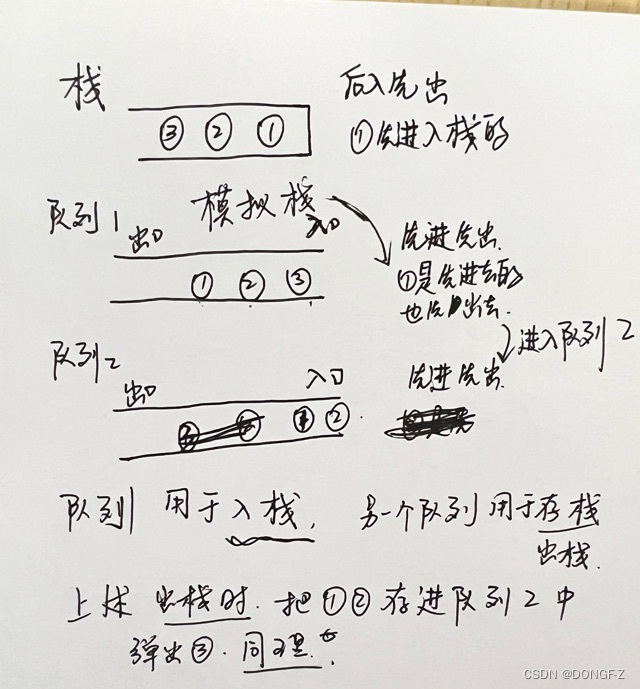 栈
后入先出
③ ② ①
①先进入栈的
队列1
模拟栈
出口
入口
先进先出.
① ② ③
①是先进去的
也先出去.
进入队列2
队列2
出口
入口
先进先出.
① ②
队列1 用于入栈, 另一个队列用于存栈
出栈.
上述 出栈时. 把①②存进队列2中
弹出③. 同理.
CSDN @DONGF-Z